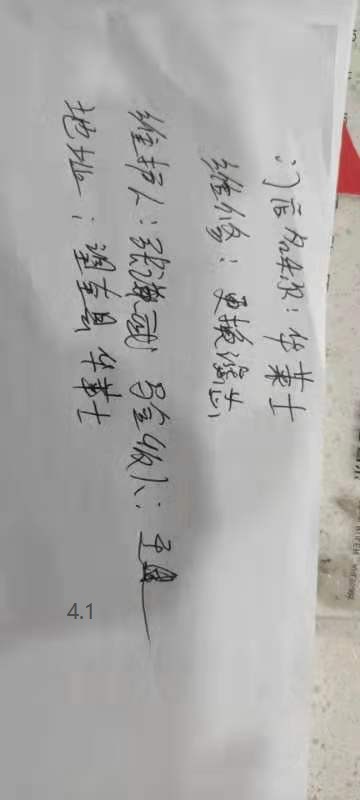 门店名称：华莱士
维修：更换滤芯
维护人：张 验收人：王
地址：望奎县华莱士
4.1